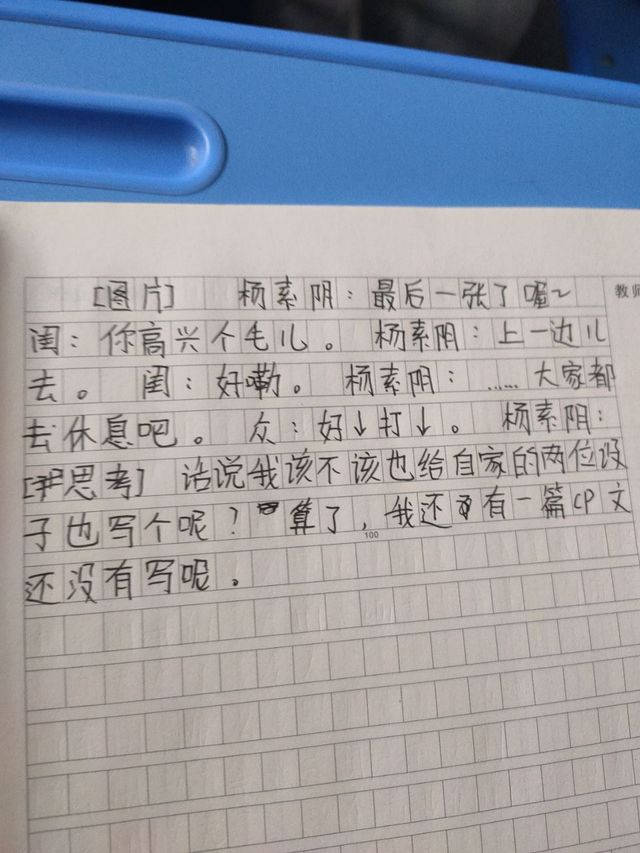 [图片] 杨素阴：最后一张了喔～
教师
闺：你高兴个毛儿。 杨素阴：上一边儿
去。 闺：好嘞。 杨素阴：……大家都
去休息吧。 众：好↓打↓。 杨素阴：
思考] 话说我该不该也给自家的两位没
子也写个呢？ 算了，我还有一篇CP文
100
还没有写呢。